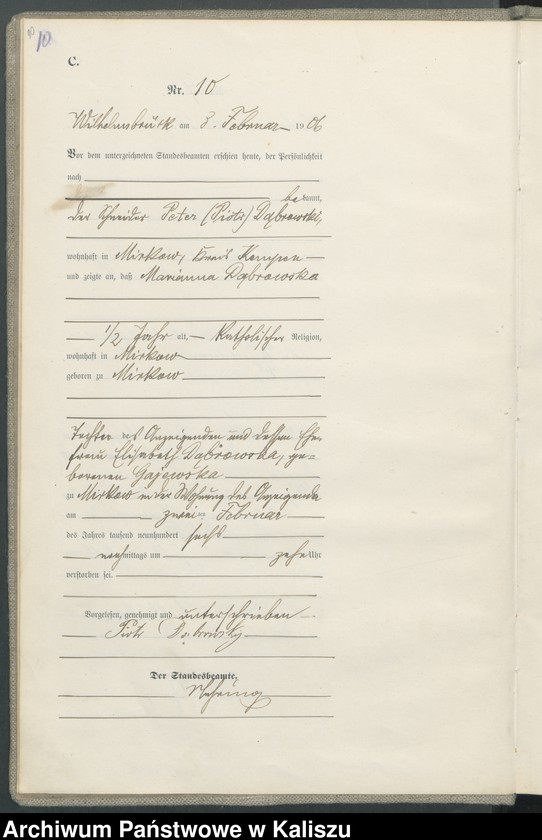 10
C.
Nr. 10
Wilhelmsbrück am 3. Februar 1906
Vor dem unterzeichneten Standesbeamten erschien heute, der Persönlichkeit
nach
bekannt,
der Schneider Peter (Piotr) Dąbrowski,
wohnhaft in Mirkow, Kreis Kempen
und zeigte an, daß Marianna Dąbrowska
1/2 Jahr alt, katholischer Religion,
wohnhaft in Mirkow
geboren zu Mirkow
Tochter des Anzeigenden und dessen Ehe-
frau Elisabeth Dąbrowska, ge-
borenen Gajewska
zu Mirkow in der Wohnung des Anzeigenden
am zweiten Februar
des Jahres tausend neunhundert sechs
nachmittags um zehn Uhr
verstorben sei.
Vorgelesen, genehmigt und unterschrieben
Piotr Dąbrowsky
Der Standesbeamte.
Archiwum Państwowe w Kaliszu